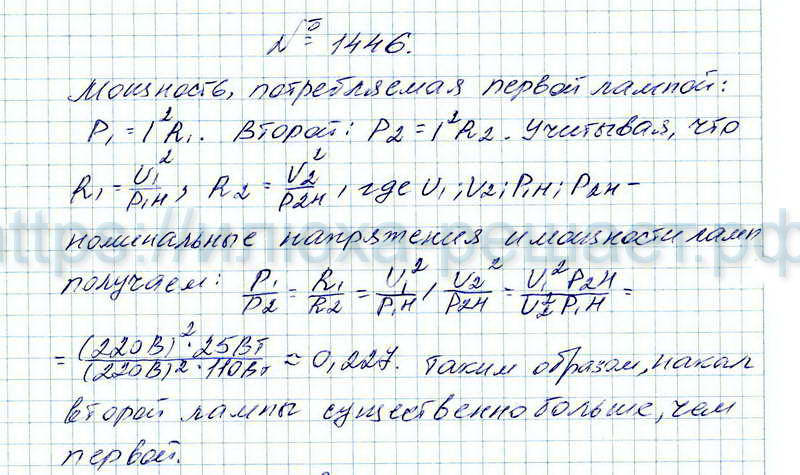 № 1446.
Мощность, потребляемая первой лампой:
P₁ = I²R₁. Второй: P₂ = I²R₂. Учитывая, что
R₁ = U₁²/P₁н, R₂ = U₂²/P₂н, где U₁; U₂; P₁н; P₂н –
номинальные напряжения и мощности ламп
получаем: P₁/P₂ = R₁/R₂ = U₁²/P₁н / U₂²/P₂н = U₁²P₂н/U₂²P₁н =
= (220В)²·25Вт/(220В)²·110Вт ≈ 0,227. Таким образом, накал
второй лампы существенно больше, чем
первой.